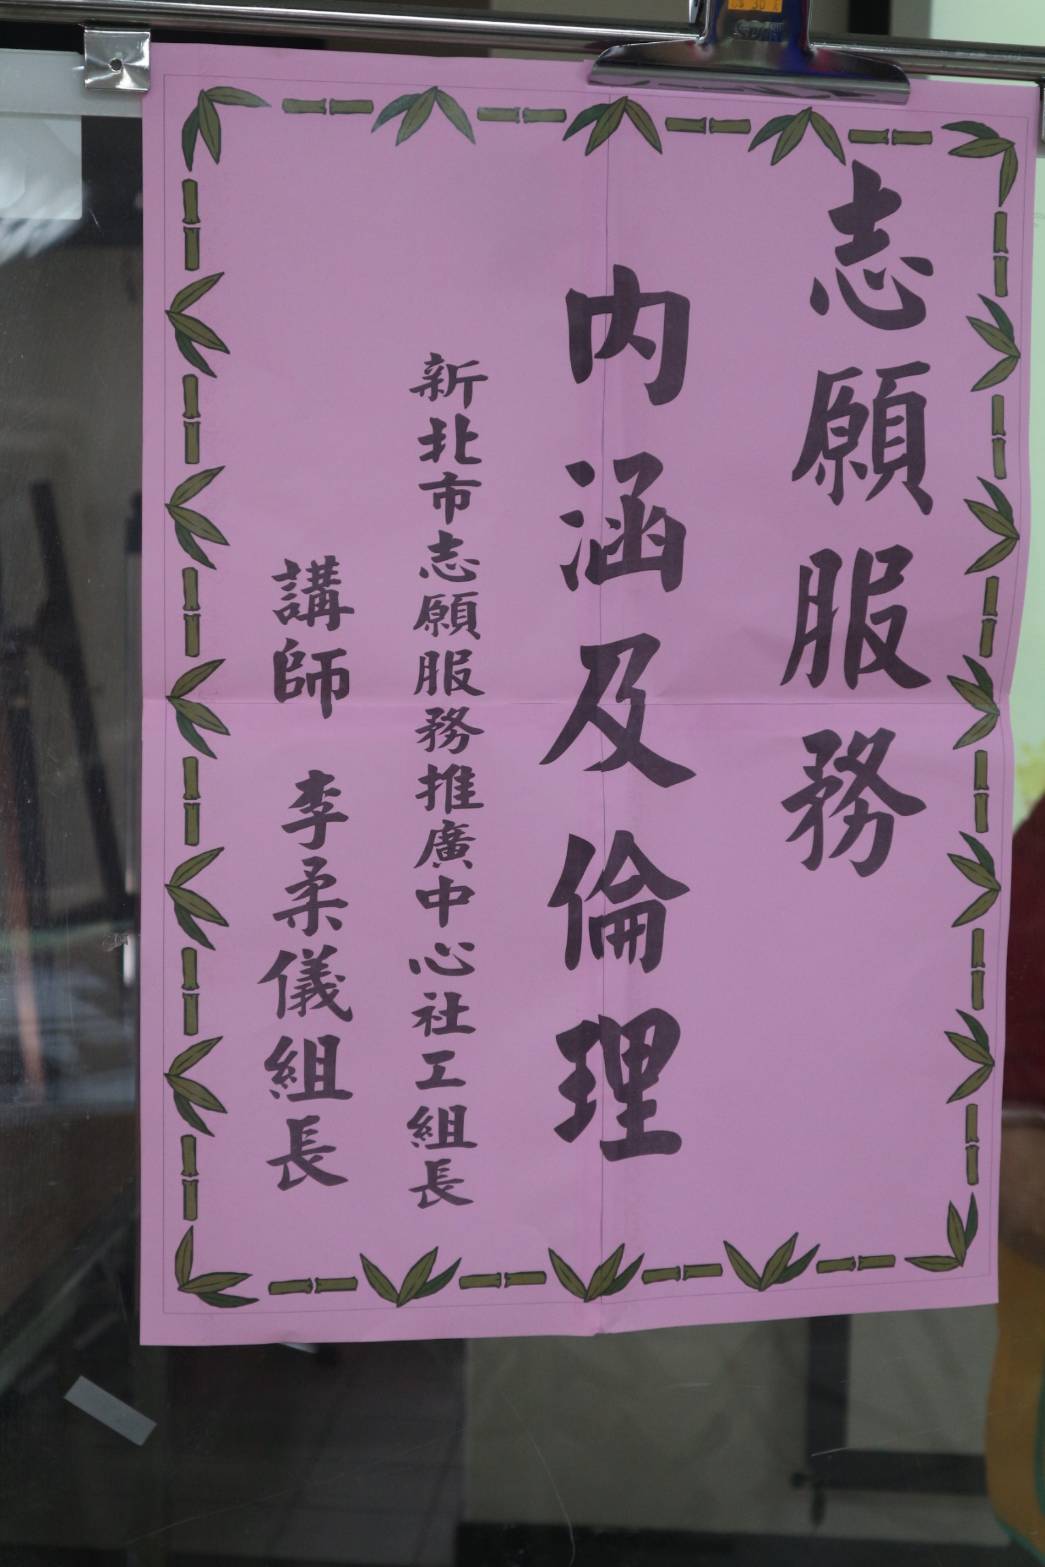 志願服務
內涵及倫理
新北市志願服務推廣中心社工組長
講師 李柔儀組長